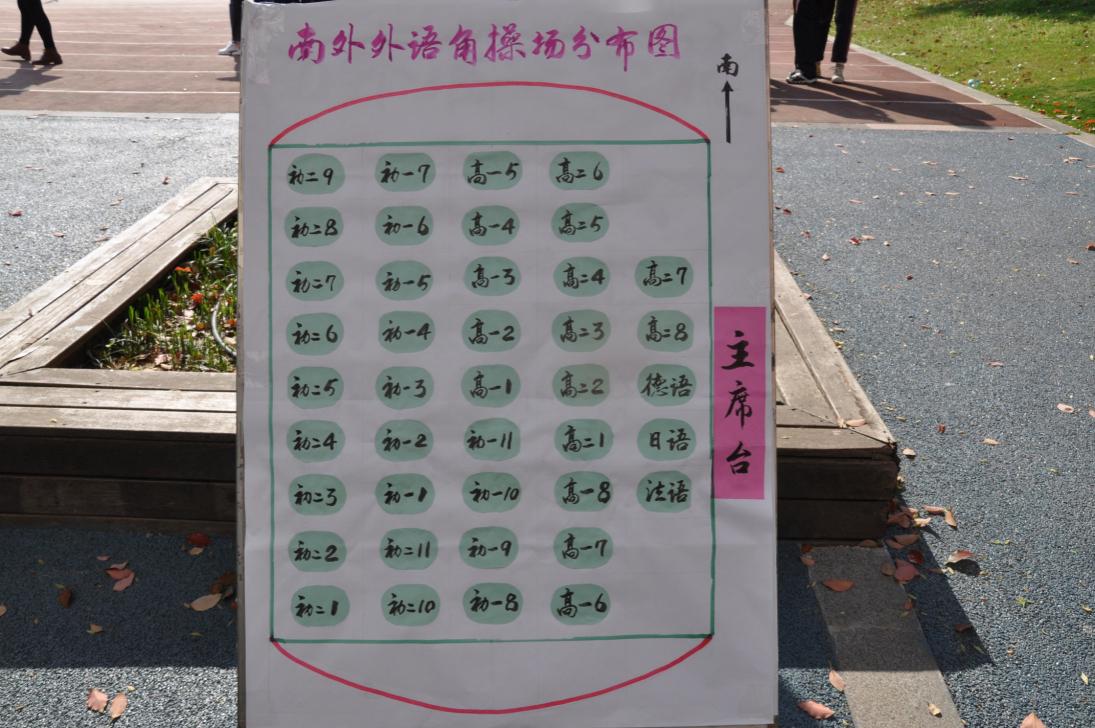 南外外语角操场分布图
南
初二9 初一7 高一5 高二6
初二8 初一6 高一4 高二5
初二7 初一5 高一3 高二4 高二7
初二6 初一4 高一2 高二3 高二8
初二5 初一3 高一1 高二2 德语
初二4 初一2 初一11 高二1 日语
初二3 初一1 初一10 高一8 法语
初二2 初二11 初一9 高一7
初二1 初二10 初一8 高一6
主席台